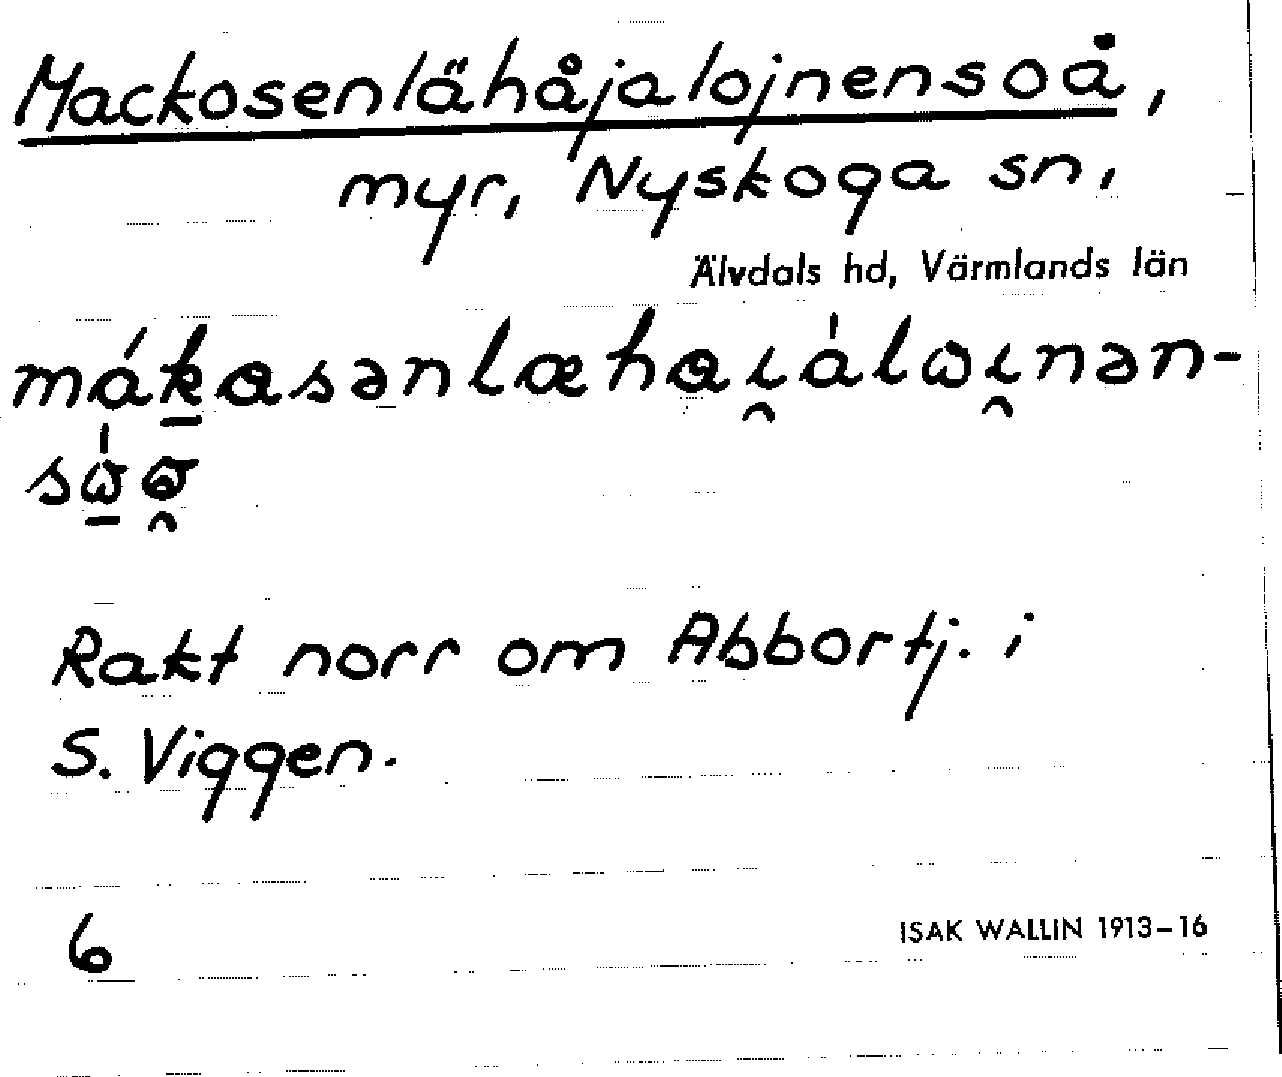 Mackosenlähåjalojnensoå,
myr, Nyskoga sn,
Älvdals hd, Värmlands län
mákasənlæhaı̯álɷı̯nən-
Rakt norr om Abbortj. i
S. Viggen.
6
ISAK WALLIN 1913–16